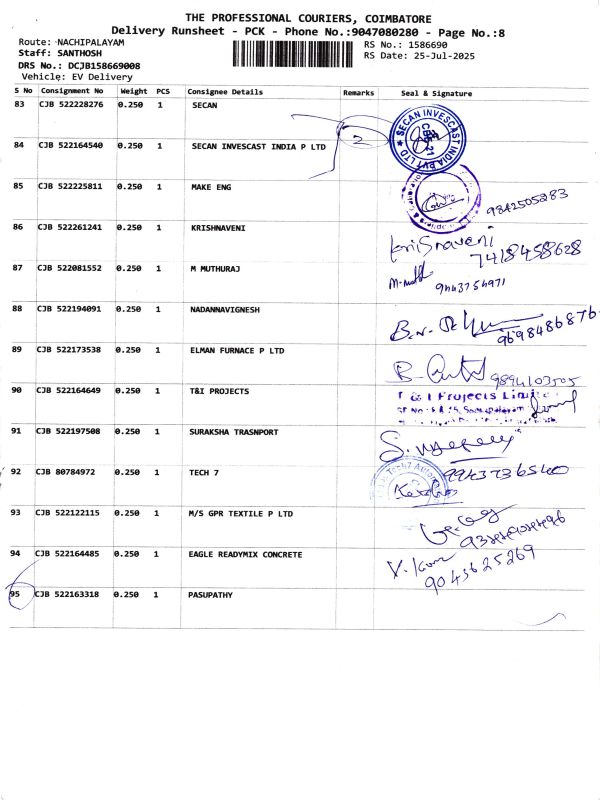 THE PROFESSIONAL COURIERS, COIMBATORE
Delivery Runsheet - PCK - Phone No.:9047080280 - Page No.:8
Route: NACHIPALAYAM
RS No.: 1586690
Staff: SANTHOSH
RS Date: 25-Jul-2025
DRS No.: DCJB158669008
Vehicle: EV Delivery
S No Consignment No Weight PCS Consignee Details Remarks Seal & Signature
83 CJB 522228276 0.250 1 SECAN
SECAN INVESCAST INDIA PVT LTD
2
84 CJB 522164540 0.250 1 SECAN INVESCAST INDIA P LTD
85 CJB 522225811 0.250 1 MAKE ENG
9842505283
86 CJB 522261241 0.250 1 KRISHNAVENI
7418458628
87 CJB 522081552 0.250 1 M MUTHURAJ
9443754971
88 CJB 522194091 0.250 1 NADANNAVIGNESH
9698486876
89 CJB 522173538 0.250 1 ELMAN FURNACE P LTD
9894103505
90 CJB 522164649 0.250 1 T&I PROJECTS
T & I Projects Limited
91 CJB 522197508 0.250 1 SURAKSHA TRASNPORT
92 CJB 80784972 0.250 1 TECH 7
Tech7
9943736540
93 CJB 522122115 0.250 1 M/S GPR TEXTILE P LTD
94 CJB 522164485 0.250 1 EAGLE READYMIX CONCRETE
9043625269
95 CJB 522163318 0.250 1 PASUPATHY